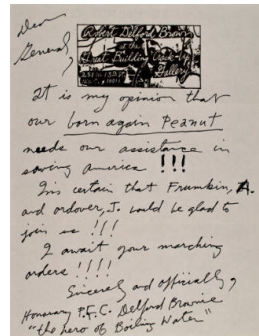 Dear
General,
Robert Delford Brown
at the
Great Building Crack-Up
Gallery
251 W 13 St.
It is my opinion that
our born again Peanut
needs our assistance in
saving America !!!
I'm certain that Frumkin, A.
and Ordover, J. would be glad to
join us !!!
I await your marching
orders !!!!
Sincerely and officially,
Honorary P.F.C. Delford Brownie
"the hero of Boiling Water"